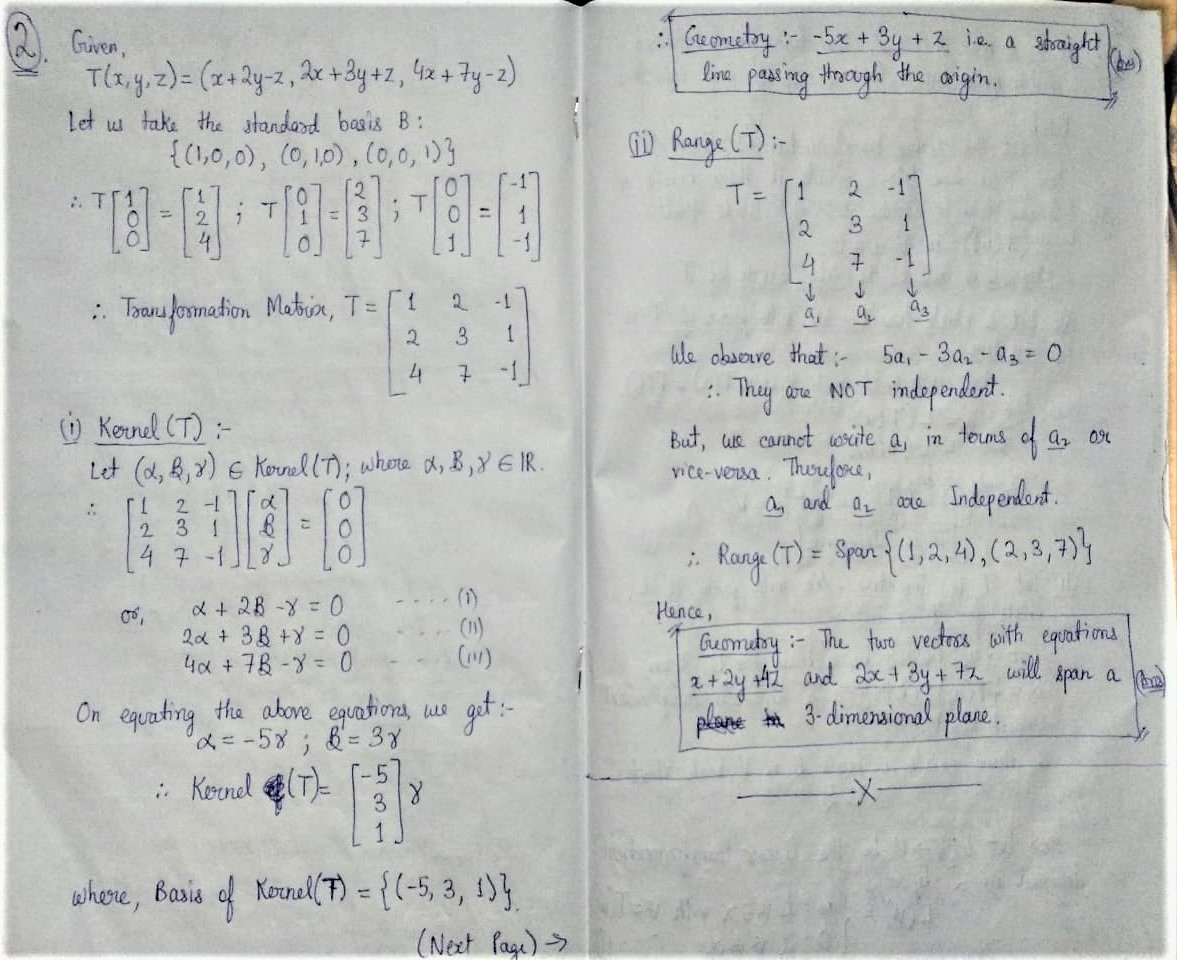 2. Given,
T(x, y, z) = (x+2y-z, 2x+3y+z, 4x+7y-z)
Let us take the standard basis B:
{(1,0,0), (0,1,0), (0,0,1)}
∴ T [1 0 0] = [1 2 4] ; T [0 1 0] = [2 3 7] ; T [0 0 1] = [-1 1 -1]
∴ Transformation Matrix, T = [1 2 -1
2 3 1
4 7 -1]
(i) Kernel (T) :-
Let (α, β, γ) ∈ Kernel (T); where α, β, γ ∈ IR.
∴ [1 2 -1
2 3 1
4 7 -1] [α β γ] = [0 0 0]
or, α + 2β - γ = 0 ---- (i)
2α + 3β + γ = 0 ---- (ii)
4α + 7β - γ = 0 --- (iii)
On equating the above equations, we get :-
α = -5γ ; β = 3γ
∴ Kernel (T) = [-5 3 1] γ
where, Basis of Kernel (T) = {(-5, 3, 1)}.
(Next Page) →
∴ Geometry :- -5x + 3y + z i.e. a straight
line passing through the origin. (Ans)
(ii) Range (T) :-
T = [1 2 -1
2 3 1
4 7 -1]
↓ ↓ ↓
a₁ a₂ a₃
We observe that :- 5a₁ - 3a₂ - a₃ = 0
∴ They are NOT independent.
But, we cannot write a₁ in terms of a₂ or
vice-versa. Therefore,
a₁ and a₂ are Independent.
∴ Range (T) = Span {(1, 2, 4), (2, 3, 7)}
Hence,
Geometry :- The two vectors with equations
x + 2y + 4z and 2x + 3y + 7z will span a (Ans)
plane in 3-dimensional plane.
X